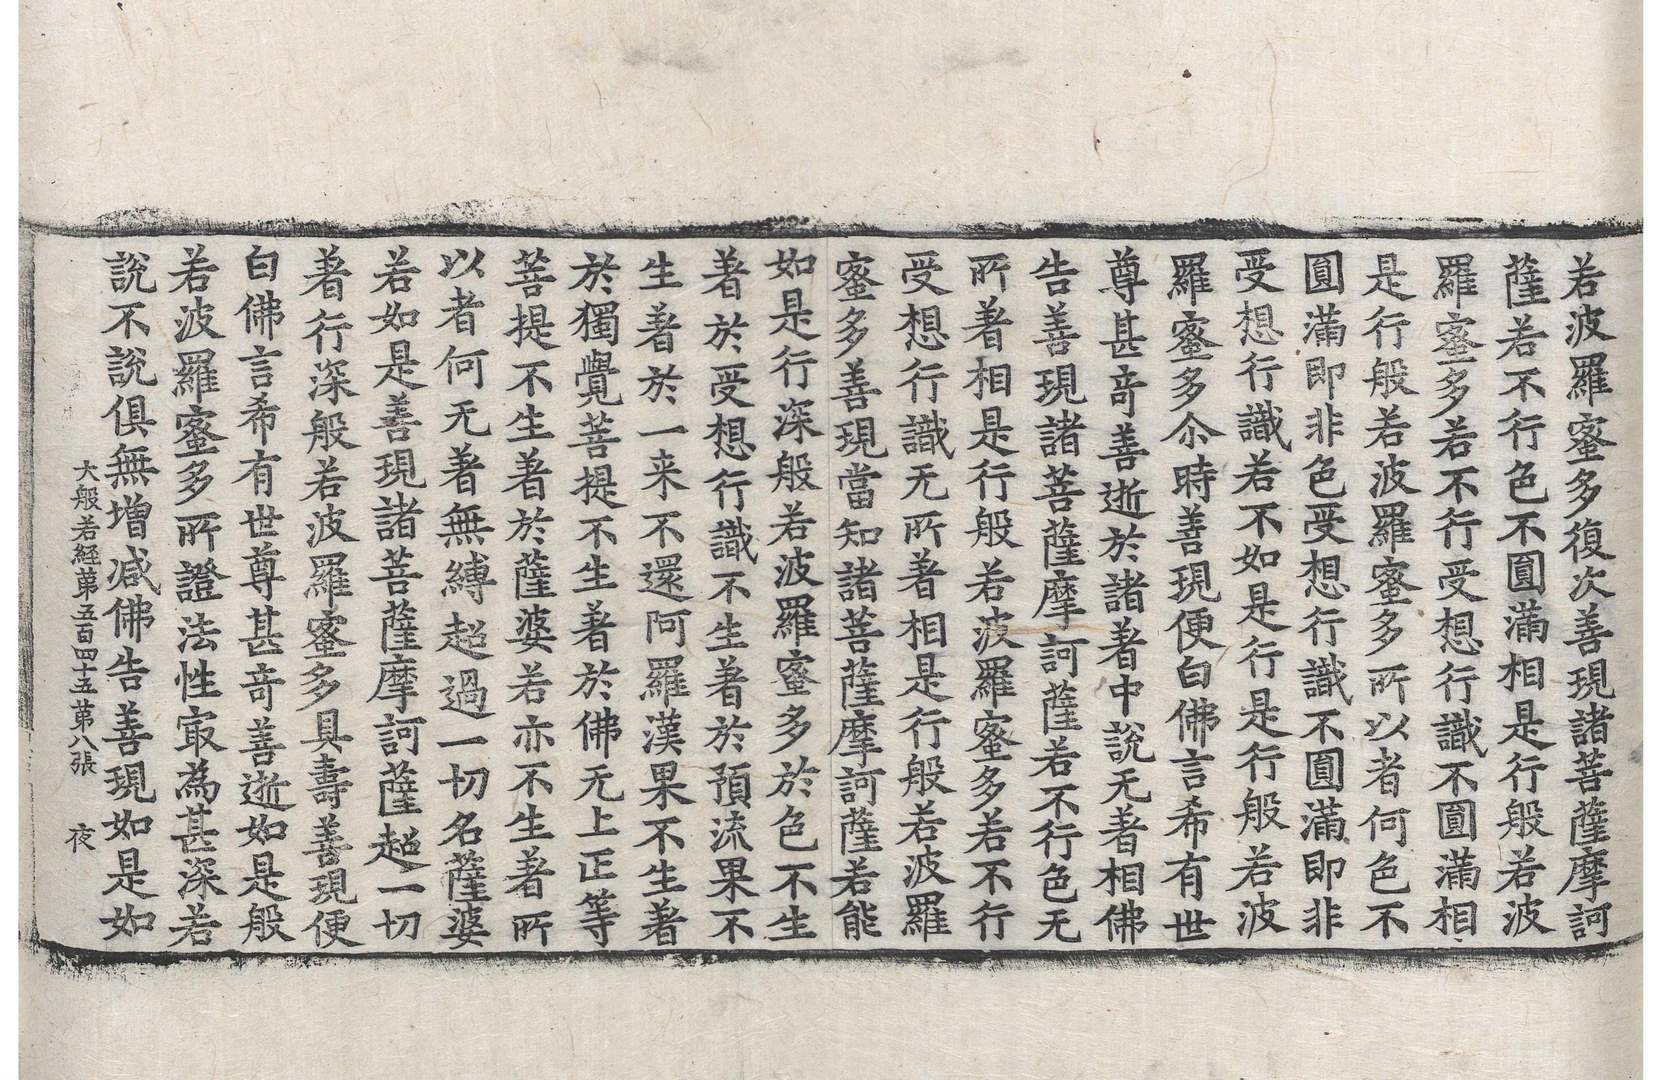 若波羅蜜多復次善現諸菩薩摩訶
薩若不行色不圓滿相是行般若波
羅蜜多若不行受想行識不圓滿相
是行般若波羅蜜多所以者何色不
圓滿即非色受想行識不圓滿即非
受想行識若不如是行是行般若波
羅蜜多尒時善現便白佛言希有世
尊甚奇善逝於諸著中說无著相佛
告善現諸菩薩摩訶薩若不行色无
所著相是行般若波羅蜜多若不行
受想行識无所著相是行般若波羅
蜜多善現當知諸菩薩摩訶薩若能
如是行深般若波羅蜜多於色不生
著於受想行識不生著於預流果不
生著於一来不還阿羅漢果不生著
於獨覺菩提不生著於佛无上正等
菩提不生著於薩婆若亦不生著所
以者何无著無縛超過一切名薩婆
若如是善現諸菩薩摩訶薩超一切
著行深般若波羅蜜多具壽善現便
白佛言希有世尊甚奇善逝如是般
若波羅蜜多所證法性㝡為甚深若
說不說俱無增減佛告善現如是如
大般若経苐五百四十五 苐八張 夜